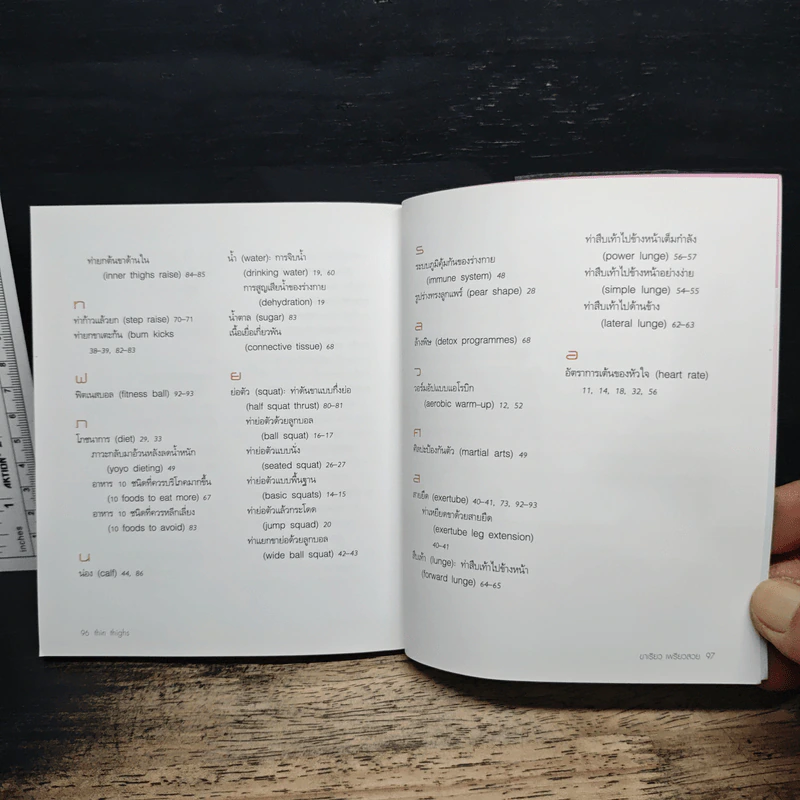 ท่ายกต้นขาด้านใน
(inner thighs raise) 84–85
ท
ท่าก้าวแล้วยก (step raise) 70–71
ท่ายกขาเตะก้น (bum kicks
38–39, 82–83
ฟ
ฟิตเนสบอล (fitness ball) 92–93
ภ
โภชนาการ (diet) 29, 33
ภาวะกลับมาอ้วนหลังลดน้ำหนัก
(yoyo dieting) 49
อาหาร 10 ชนิดที่ควรบริโภคมากขึ้น
(10 foods to eat more) 67
อาหาร 10 ชนิดที่ควรหลีกเลี่ยง
(10 foods to avoid) 83
น
น่อง (calf) 44, 86
น้ำ (water): การจิบน้ำ
(drinking water) 19, 60
การสูญเสียน้ำของร่างกาย
(dehydration) 19
น้ำตาล (sugar) 83
เนื้อเยื่อเกี่ยวพัน
(connective tissue) 68
ย
ย่อตัว (squat): ท่าดันขาแบบกึ่งย่อ
(half squat thrust) 80–81
ท่าย่อตัวด้วยลูกบอล
(ball squat) 16–17
ท่าย่อตัวแบบนั่ง
(seated squat) 26–27
ท่าย่อตัวแบบพื้นฐาน
(basic squats) 14–15
ท่าย่อตัวแล้วกระโดด
(jump squad) 20
ท่าแยกขาย่อด้วยลูกบอล
(wide ball squat) 42–43
96 thin thighs
ร
ระบบภูมิคุ้มกันของร่างกาย
(immune system) 48
รูปร่างทรงลูกแพร์ (pear shape) 28
ล
ล้างพิษ (detox programmes) 68
ว
วอร์มอัปแบบแอโรบิก
(aerobic warm-up) 12, 52
ศ
ศิลปะป้องกันตัว (martial arts) 49
ส
สายยืด (exertube) 40–41, 73, 92–93
ท่าเหยียดขาด้วยสายยืด
(exertube leg extension)
40–41
สืบเท้า (lunge): ท่าสืบเท้าไปข้างหน้า
(forward lunge) 64–65
ท่าสืบเท้าไปข้างหน้าเต็มกำลัง
(power lunge) 56–57
ท่าสืบเท้าไปข้างหน้าอย่างง่าย
(simple lunge) 54–55
ท่าสืบเท้าไปด้านข้าง
(lateral lunge) 62–63
อ
อัตราการเต้นของหัวใจ (heart rate)
11, 14, 18, 32, 56
ขาเรียว เพรียวสวย 97
inches
1